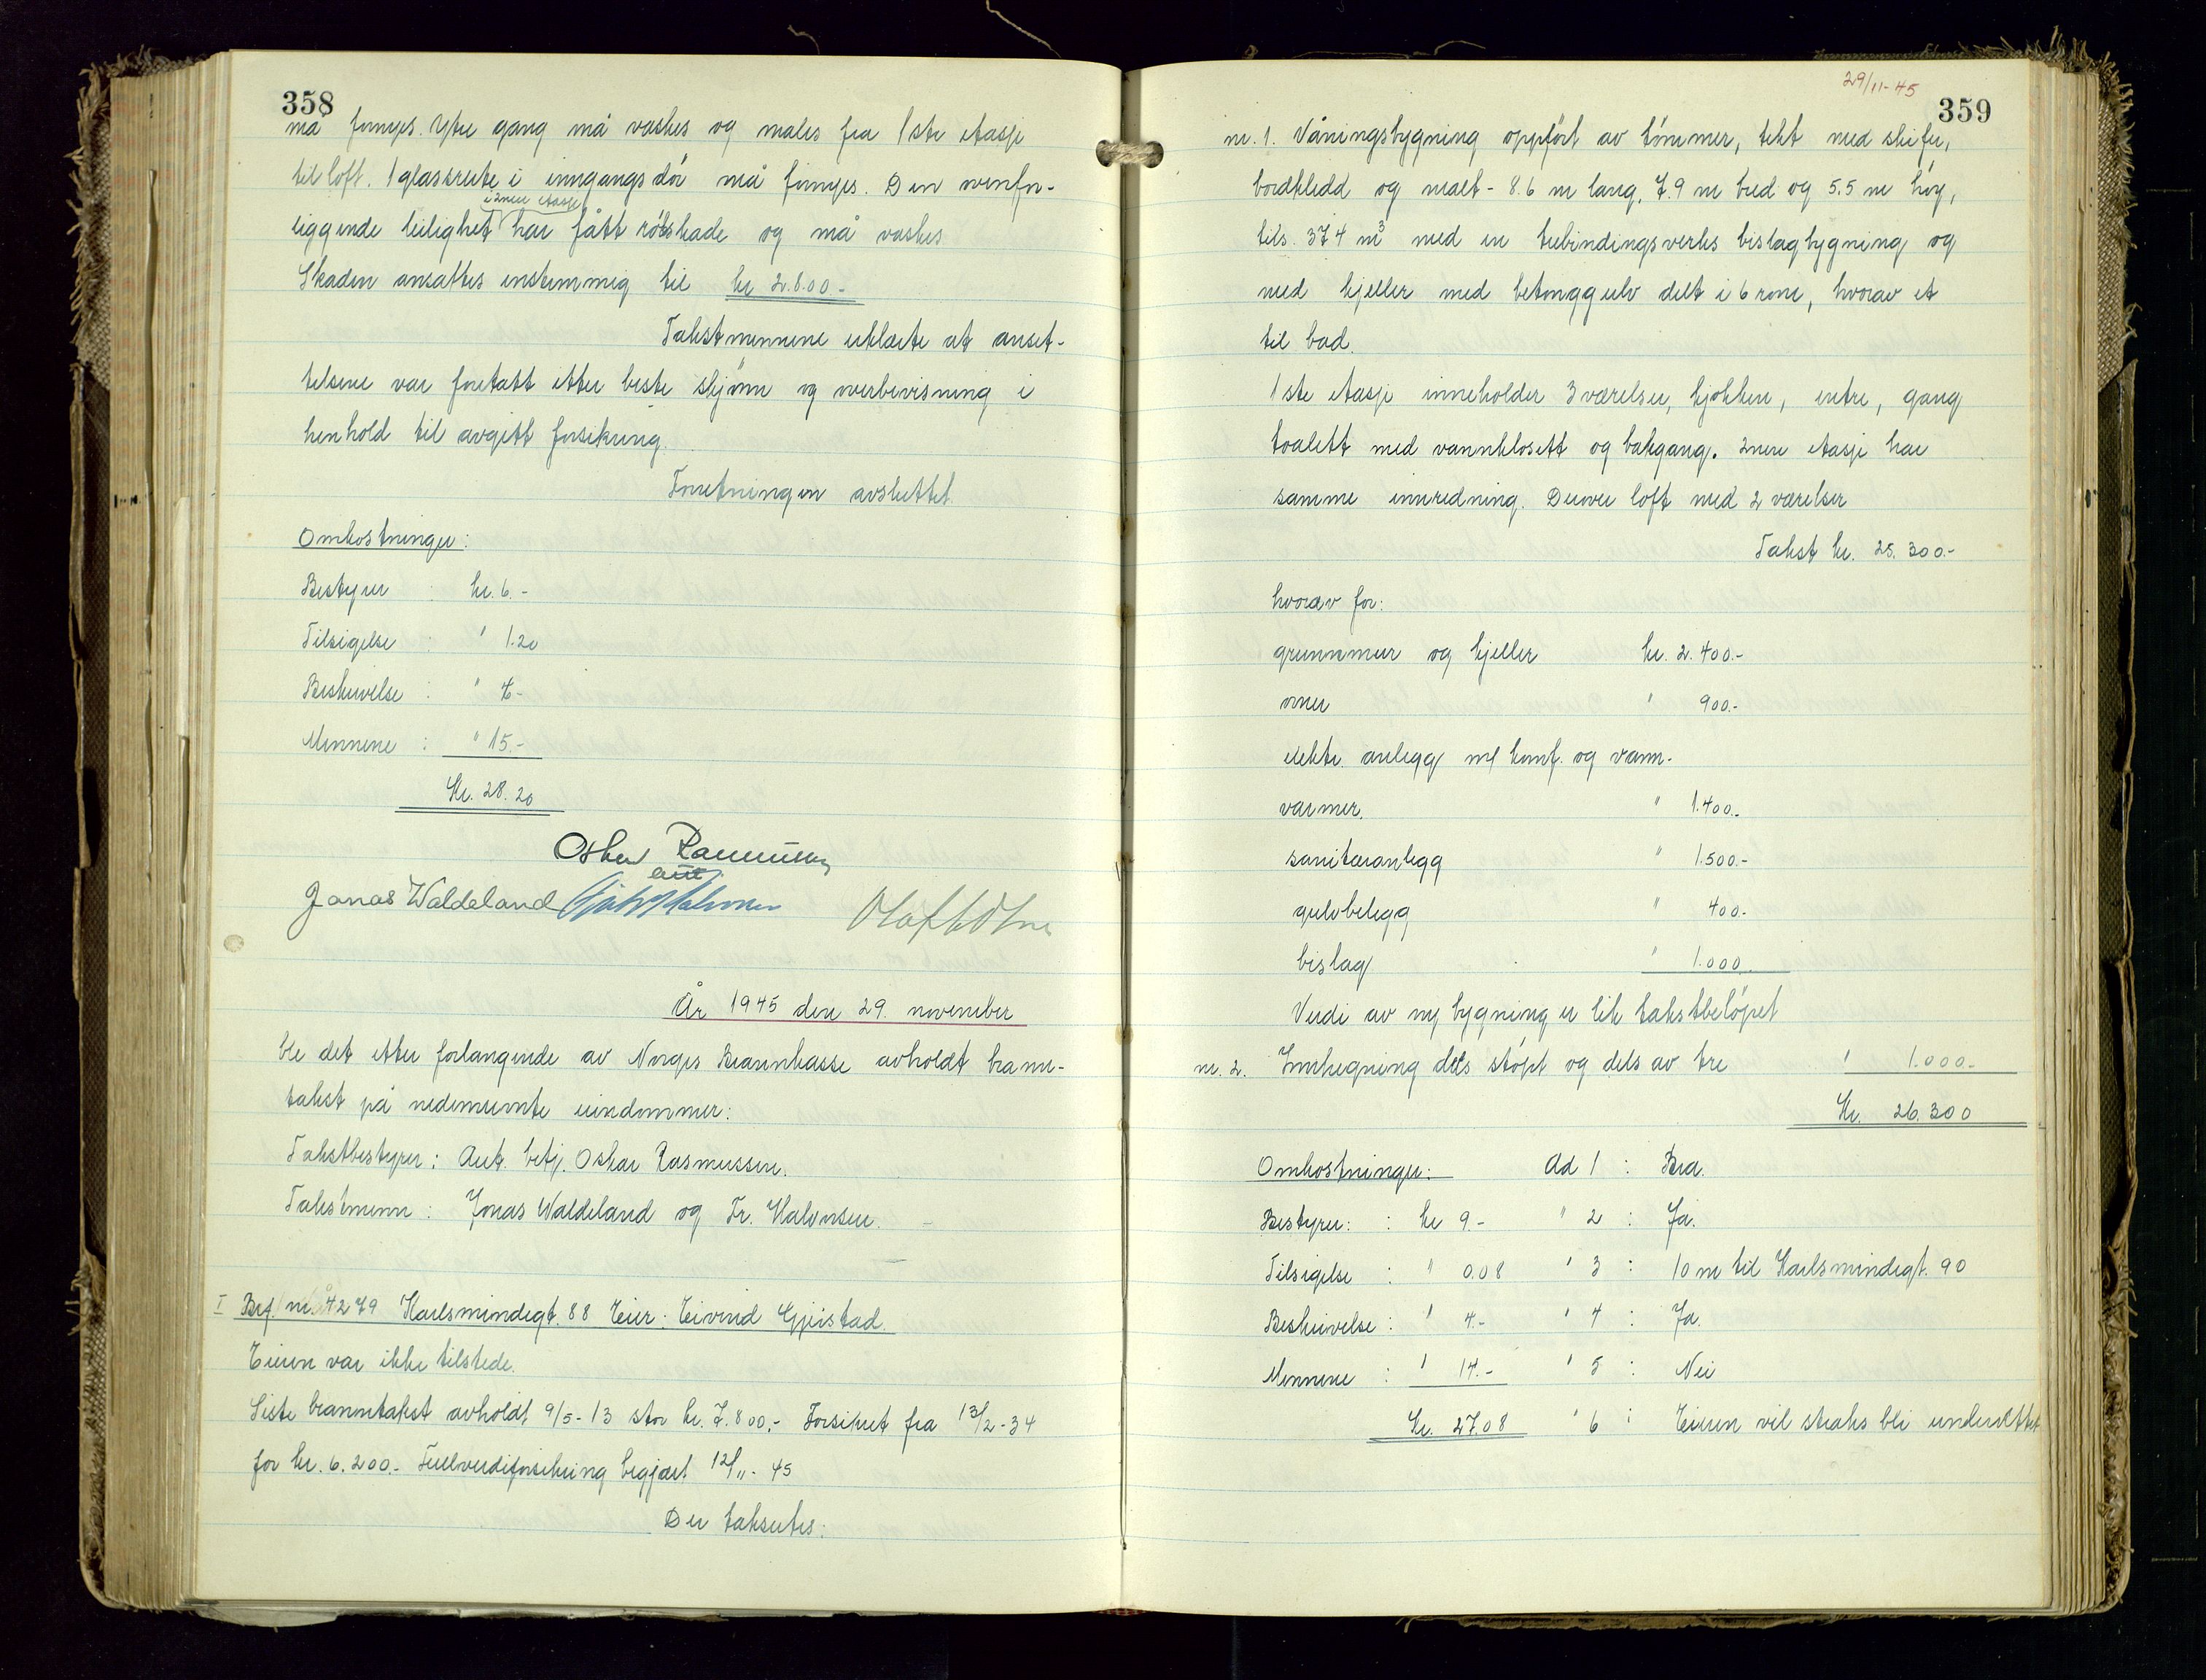 358
må fornyes. Ytre gang må vaskes og males fra 1ste etasje
til loft. 1 glassrute i inngangsdör må fornyes. Den ovenfor-
i 2nen etasje
liggende leilighet har fått rökskade og må vaskes
Skaden ansattes enstemmig til kr 2.800.-
Takstmennene erklærte at anset-
telsene var foretatt etter beste skjönn og overbevisning i
henhold til avgitt forsikring.
Forretningen avsluttet.
Omkostninger:
Bestyrer : kr. 6.-
Tilsigelse : " 1.20
Beskrivelse : " 6.-
Mennene : " 15.-
Kr. 28.20
Oskar Rasmussen
aut
Jonas Waldeland Halvorsen Olaf
År 1945 den 29. november
ble det etter forlangende av Norges Brannkasse avholdt brann-
takst på nedennevnte eiendommer:
Takstbestyrer: Aut. betj. Oskar Rasmussen.
Takstmenn: Jonas Waldeland og Fr. Halvorsen. -
I Brf. nr. 4279 Karlsmindegt. 88 Eier: Eivind Gjeistad.
Eieren var ikke tilstede.
Siste branntakst avholdt 9/5-13 stor kr. 7.800.- Forsikret fra 13/2-34
for kr. 6.200.- Fullverdiforsikring begjært 12/11-45
Der takseres:
29/11-45
359
nr. 1. Våningsbygning oppfört av tömmer, tekt med skifer,
bordkledd og malt - 8.6 m lang, 7.9 m bred og 5.5 m höy,
tils. 374 m³ med en trebindingsverks bislagbygning og
med kjeller med betonggulv delt i 6 rom, hvorav et
til bad.
1ste etasje inneholder 3 værelser, kjökken, entre, gang
toalett med vannklosett og bakgang. 2nen etasje har
samme innredning. Derover loft med 2 værelser
Takst kr. 25.300.-
hvorav for:
grunnmur og kjeller kr. 2.400.-
ovner " 900.-
elektr. anlegg m/ komf. og vann-
varmer. " 1.400.-
sanitæranlegg " 1.500.-
gulvbelegg " 400.-
bislag " 1.000.
Verdi av ny bygning er lik takstbelöpet
nr. 2. Innhegning dels stöpt og dels av tre " 1.000.-
Kr. 26.300
Omkostninger: Ad 1 : Bra.
Bestyrer: : kr 9.- " 2 : Ja.
Tilsigelse : " 0.08 " 3 : 10 m til Karlsmindegt. 90
Beskrivelse : " 4.- " 4 : Ja.
Mennene : " 14.- " 5 : Nei
Kr. 27.08 " 6 : Eieren vil straks bli underrettet